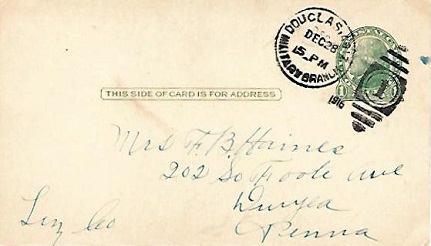 DOUGLAS, ARIZ.
DEC 28
5-PM
MILITARY BRANCH
1916
1
THIS SIDE OF CARD IS FOR ADDRESS
Mrs F. B. Haines
202 So Foote Ave
Duryea
Penna
Luz Co